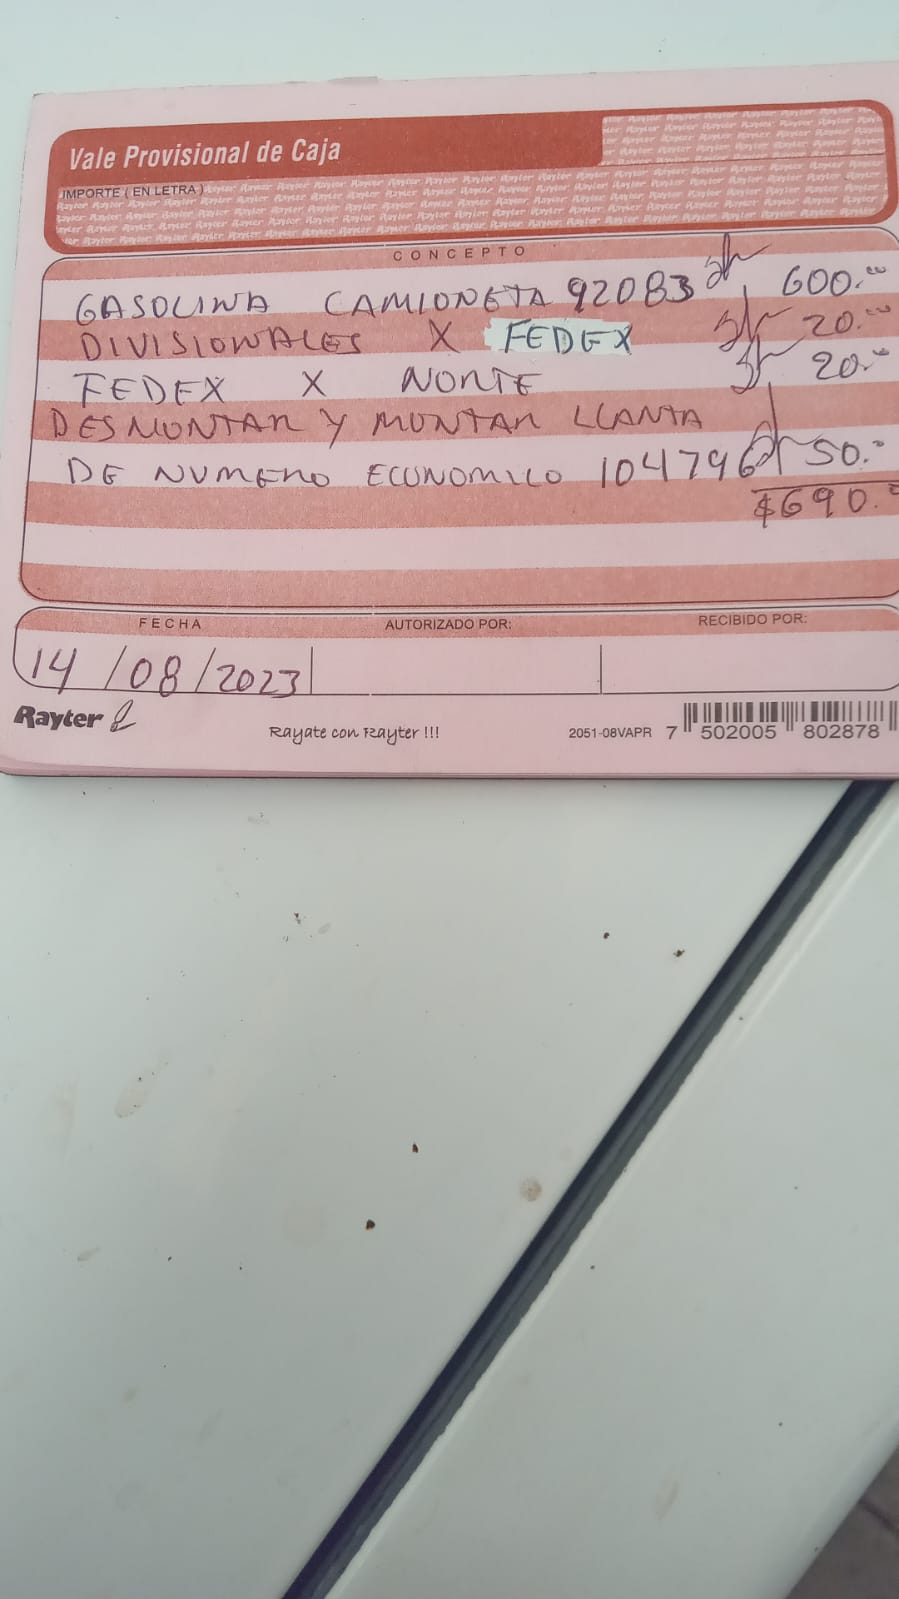 Vale Provisional de Caja
IMPORTE ( EN LETRA )
CONCEPTO
GASOLINA CAMIONETA 92083 600.00
DIVISIONALES X FEDEX 20.00
FEDEX X NORTE 20.00
DESMONTAR Y MONTAR LLANTA
DE NUMERO ECONOMICO 104796 50.00
$690.00
FECHA AUTORIZADO POR: RECIBIDO POR:
14/08/2023
Rayter Rayate con Rayter !!! 2051-08VAPR 7 502005 802878